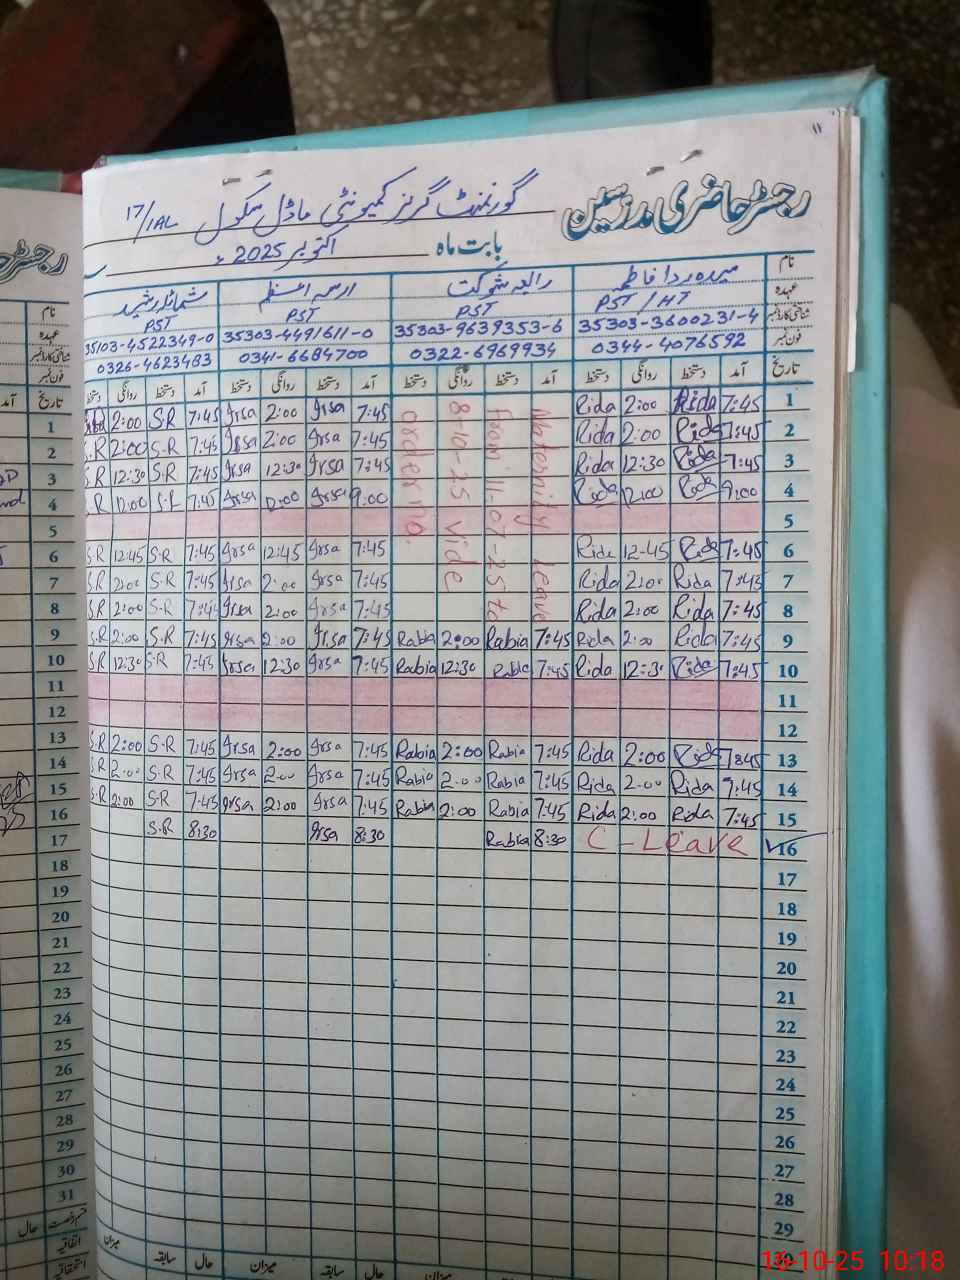 رجسٹر حاضری مدرسین گورنمنٹ گرلز کمیونٹی ماڈل سکول 17/1AL
بابت ماہ اکتوبر 2025ء
نام
عہدہ PST/HT PST PST PST
شناختی کارڈ نمبر 35303-3600231-4 35303-9639353-6 35303-4491611-0 35103-4522349-0
فون نمبر 0344-4076592 0322-6969934 0341-6684700 0326-4623483
تاریخ آمد دستخط روانگی دستخط آمد دستخط روانگی دستخط آمد دستخط روانگی دستخط آمد دستخط روانگی دستخط
1 7:45 Rida 2:00 Rida 7:45 Irsa 2:00 Irsa 7:45 S.R 2:00
2 7:45 Rida 2:00 Rida 7:45 Irsa 2:00 Irsa 7:45 S.R 2:00 S.R
3 7:45 Rida 12:30 Rida 7:45 Irsa 12:30 Irsa 7:45 S.R 12:30 S.R
4 9:00 Rida 12:00 Rida 9:00 Irsa 12:00 Irsa 7:45 S.R 12:00 S.R
Maternity leave
From 11-07-25 to
8-10-25 vide
order no.
5
6 7:45 Rida 12-45 Rida 7:45 Irsa 12:45 Irsa 7:45 S.R 12:45 S.R
7 7:45 Rida 2:00 Rida 7:45 Irsa 2:00 Irsa 7:45 S.R 2:00 S.R
8 7:45 Rida 2:00 Rida 7:45 Irsa 2:00 Irsa 7:45 S.R 2:00 S.R
9 7:45 Rida 2:00 Rida 7:45 Rabia 2:00 Rabia 7:45 Irsa 2:00 Irsa 7:45 S.R 2:00 S.R
10 7:45 Rida 12:30 Rida 7:45 Rabia 12:30 Rabia 7:45 Irsa 12:30 Irsa 7:45 S.R 12:30 S.R
11
12
13 7:45 Rida 2:00 Rida 7:45 Rabia 2:00 Rabia 7:45 Irsa 2:00 Irsa 7:45 S.R 2:00 S.R
14 7:45 Rida 2:00 Rida 7:45 Rabia 2:00 Rabia 7:45 Irsa 2:00 Irsa 7:45 S.R 2:00 S.R
15 7:45 Rida 2:00 Rida 7:45 Rabia 2:00 Rabia 7:45 Irsa 2:00 Irsa 7:45 S.R 2:00 S.R
16 C-Leave 8:30 Rabia 8:30 Irsa 8:30 S.R
17
18
19
20
21
22
23
24
25
26
27
28
29
حال سابقہ میزان حال سابقہ میزان
نام
عہدہ
شناختی کارڈ نمبر
فون نمبر
تاریخ آمد
1
2
3
4
5
6
7
8
9
10
11
12
13
14
15
16
17
18
19
20
21
22
23
24
25
26
27
28
29
30
31
قسم رخصت حال
اتفاقیہ
استحقاقیہ
16-10-25 10:18